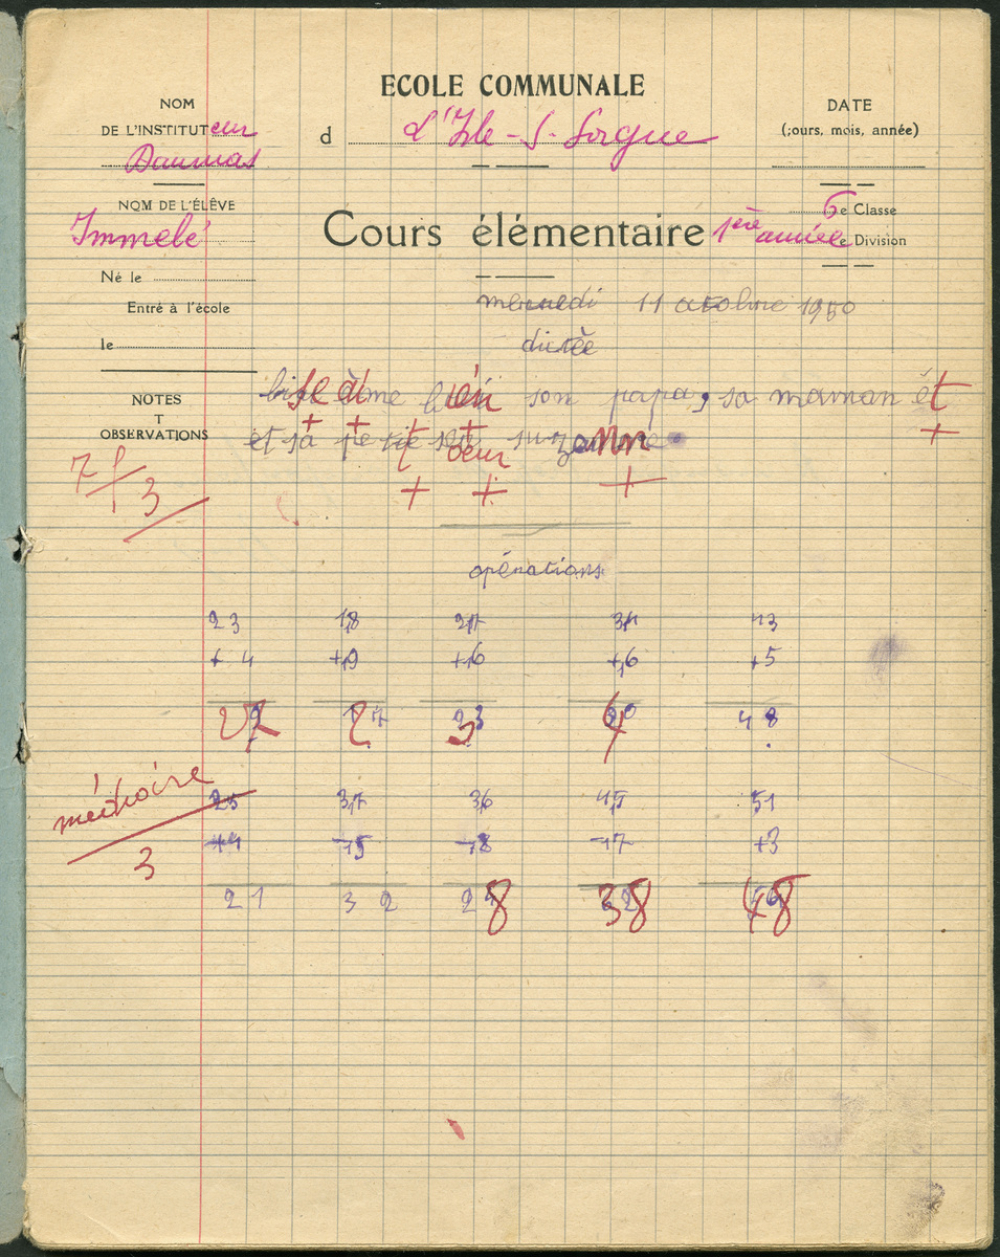 ECOLE COMMUNALE
NOM
DE L'INSTITUTeur
Daumas
d L'Isle-S-Sorgue
DATE
(;ours, mois, année)
NOM DE L'ÉLÈVE
Immelé
Cours élémentaire 1ère année
6e Classe
e Division
Né le
Entré à l'école
le
mercredi 11 octobre 1950
dictée
NOTES
T
OBSERVATIONS
son papa, sa maman et
et sa
7f
3
opérations
23 18 27 34 43
+ 4 +9 +6 +6 +5
27 27 33 40 48
médiocre
3
25 37 36 45 51
-4 -5 -8 -7 +3
21 32 28 38 48